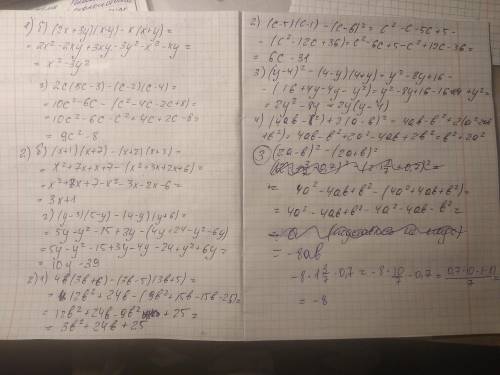 1) б) (2x + 3y)(x-y) - x(x+y) =
= 2x² - 2xy + 3xy - 3y² - x² - xy =
= x² - 3y²
2c(5c-3) - (c-2)(c-4) =
= 10c² - 6c - (c² - 4c - 2c + 8) =
= 10c² - 6c - c² + 4c + 2c - 8 =
= 9c² - 8
2) б) (x+1)(x+7) - (x+2)(x+3) =
= x² + 7x + x + 7 - (x² + 3x + 2x + 6) =
= x² + 8x + 7 - x² - 3x - 2x - 6 =
= 3x + 1
2) (y-3)(5-y) - (4-y)(y+6) =
= 5y - y² - 15 + 3y - (4y + 24 - y² - 6y)
= 5y - y² - 15 + 3y - 4y - 24 + y² + 6y =
= 10y - 39
2) 1) 4b(3b+6) - (3b-5)(3b+5) =
= 12b² + 24b - (9b² + 15b - 15b - 25) =
= 12b² + 24b - 9b² + 25 =
= 3b² + 24b + 25
2) (c-5)(c-1) - (c-6)² = c² - c - 5c + 5 -
- (c² - 12c + 36) = c² - 6c + 5 - c² + 12c - 36 =
= 6c - 31
3) (y-4)² - (4-y)(4+y) = y² - 8y + 16 -
- (16 + 4y - 4y - y²) = y² - 8y + 16 - 16 + y² =
= 2y² - 8y = 2y(y-4)
4) (4ab - b²) + 2(a-b)² = 4ab - b² + 2(a² - 2ab
+ b²) = 4ab - b² + 2a² - 4ab + 2b² = b² + 2a²
3 (2a-b)² - (2a+b)²
= 4a² - 4ab + b² - (4a² + 4ab + b²) =
= 4a² - 4ab + b² - 4a² - 4ab - b² =
= -8ab
-8 · 1 3/7 · 0,7 = -8 · 10/7 · 0,7 =
= -8